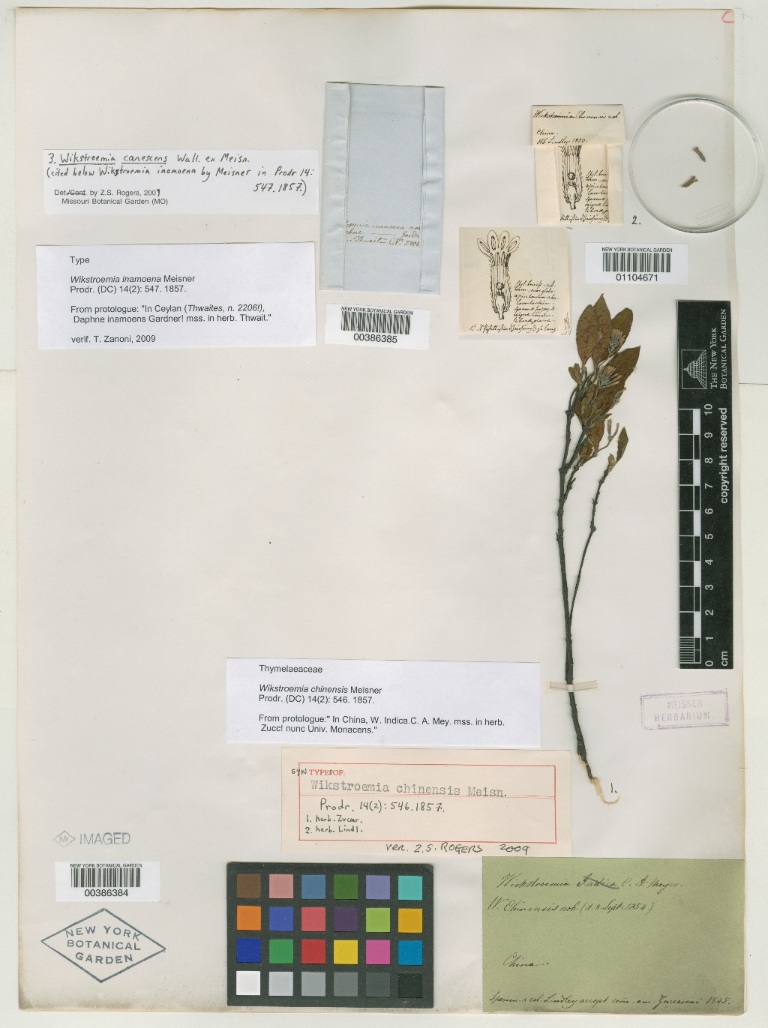 3. Wikstroemia canescens Wall. ex Meisn.
(cited below Wikstroemia inamoena by Meisner in Prodr 14:
547. 1857.)
Det./Conf. by Z.S. Rogers, 2009
Missouri Botanical Garden (MO)
Type
Wikstroemia inamoena Meisner
Prodr. (DC) 14(2): 547. 1857.
From protologue: "In Ceylan (Thwaites, n. 2206!),
Daphne inamoens Gardner! mss. in herb. Thwait."
verif. T. Zanoni, 2009
NEW YORK BOTANICAL GARDEN
00386385
China.
2.
NEW YORK BOTANICAL GARDEN
01104671
THE NEW YORK
BOTANICAL GARDEN
copyright reserved
0 1 2 3 4 5 6 7 8 9 10
cm
Thymelaeaceae
Wikstroemia chinensis Meisner
Prodr. (DC) 14(2): 546. 1857.
From protologue:" In China, W. Indica C. A. Mey. mss. in herb.
Zucc! nunc Univ. Monacens."
MEISNER
HERBARIUM
1.
SYNTYPE OF:
Wikstroemia chinensis Meisn.
Prodr. 14(2): 546. 1857.
1. herb. Zuccar.
2. herb. Lindl.
ver. Z.S. ROGERS 2009
IMAGED
NEW YORK BOTANICAL GARDEN
00386384
NEW YORK
BOTANICAL
GARDEN
Wikstroemia Indica C. A. Meyer.
W. Chinensis nob. (d. 8 Sept. 1854)
China.
Zuccarini 1845.